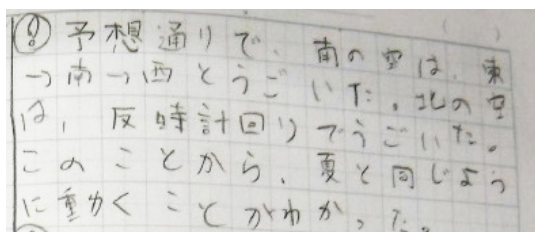 ⑧予想通りで、南の空は、東
→南→西とうごいた。北の空
は、反時計回りでうごいた。
このことから、夏と同じよう
に重かくことがわかった。